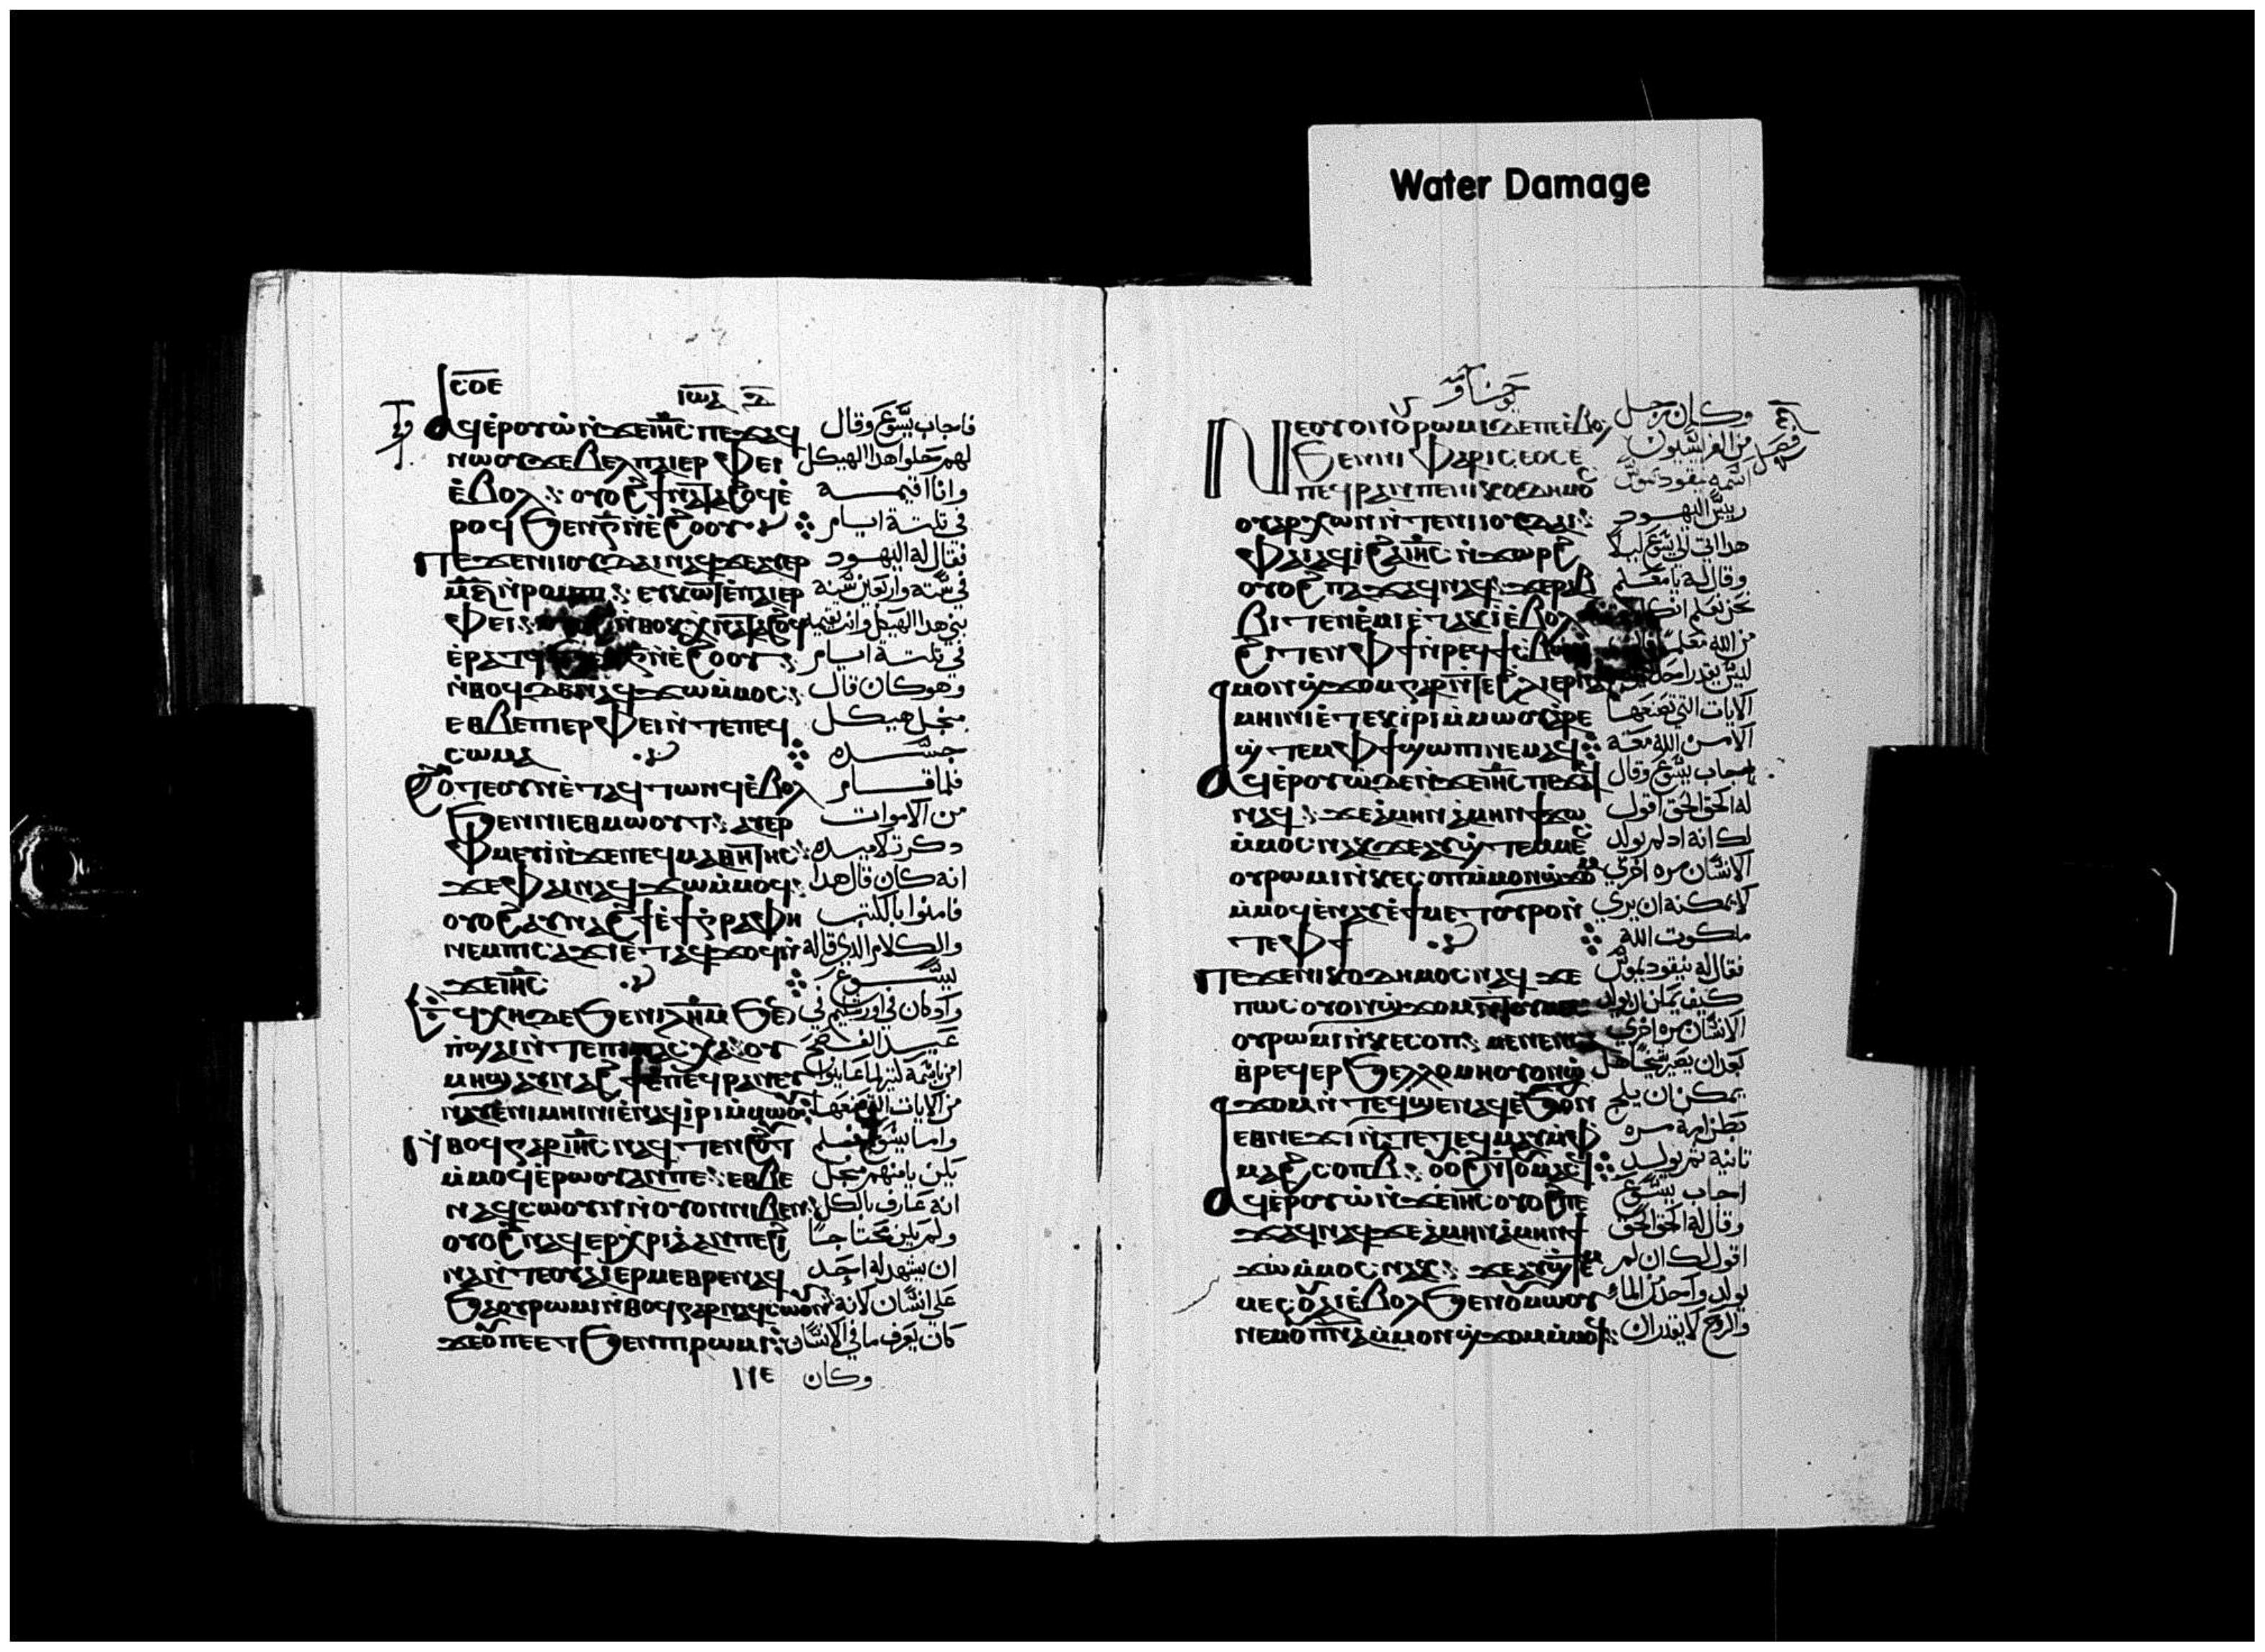 Water Damage
ⲥⲟⲉ
ⲓⲱⲁ
ⲁϥⲉ̀ⲣⲟⲩⲱ̀ ⲛ̀ϫⲉ ⲓⲏ̅ⲥ̅ ⲡⲉϫⲁϥ فاجاب يسوع وقال
ⲛⲱⲟⲩ ϫⲉ ⲃⲉⲗ ⲡⲁⲓⲉⲣⲫⲉⲓ لهم حلوا هدا الهيكل
ⲉ̀ⲃⲟⲗ ⲟⲩⲟϩ ϯⲛⲁⲧⲁϩⲟϥ ⲉ̀ وانا اقيمه
ⲣⲟϥ ϧⲉⲛ ⲅ̅ ⲛ̀ⲉ̀ϩⲟⲟⲩ في تلتة ايام
ⲡⲉϫⲉ ⲛⲓⲓⲟⲩⲇⲁⲓ ⲛⲁϥ ϫⲉ ⲁⲩⲉⲣ فقال له اليهود
ⲙ̅ⲋ̅ ⲛ̀ⲣⲟⲙⲡⲓ ⲉⲩⲕⲱϯ ⲉ̀ⲡⲁⲓⲉⲣ في ستة واربعين سنة
ⲫⲉⲓ ⲛ̀ⲑⲟⲕ ⲭⲛⲁⲧⲁϩⲟϥ بني هدا الهيكل وانت تقيمه
ⲉ̀ⲣⲁⲧϥ ⲅ̅ ⲛ̀ⲉ̀ϩⲟⲟⲩ في تلتة ايام
ⲛ̀ⲑⲟϥ ⲇⲉ ⲛⲁϥϫⲱ ⲙ̀ⲙⲟⲥ وهو كان قال
ⲉⲑⲃⲉ ⲡⲓⲉⲣⲫⲉⲓ ⲛ̀ⲧⲉ ⲡⲉϥ مجل هيكل
ⲥⲱⲙⲁ جسده
ϩⲟⲧⲉ ⲟⲩⲛ ⲉ̀ⲧⲁϥⲧⲱⲛϥ ⲉ̀ⲃⲟⲗ فلما قام
ϧⲉⲛ ⲛⲓⲉⲑⲙⲱⲟⲩⲧ ⲁⲩⲉⲣ من الاموات
ⲫⲙⲉⲩⲓ̀ ⲛ̀ϫⲉ ⲛⲉϥⲙⲁⲑⲏⲧⲏⲥ دكر تلاميده
ϫⲉ ⲫⲁⲓ ⲛⲁϥϫⲱ ⲙ̀ⲙⲟϥ انه كان قال هدا
ⲟⲩⲟϩ ⲁⲩⲛⲁϩϯ ⲉ̀ϯⲅⲣⲁⲫⲏ فامنوا بالكتب
ⲛⲉⲙ ⲡⲓⲥⲁϫⲓ ⲉ̀ⲧⲁϥϫⲟϥ ⲛ̀ والكلام الدي قاله
ϫⲉ ⲓⲏ̅ⲥ̅ يسوع
ⲉϥⲭⲏ ⲇⲉ ϧⲉⲛ ⲓⲗ̅ⲏ̅ⲙ̅ ϧⲉⲛ واد كان في اورشليم في
ⲡ̀ϣⲁⲓ ⲛ̀ⲧⲉ ⲡⲓⲡⲁⲥⲭⲁ ⲟⲩ عيد الفصح
ⲙⲏϣ ⲁⲩⲛⲁϩϯ ⲉ̀ⲡⲉϥⲣⲁⲛ ⲉⲩ امن باسمه كتير لما عاينوا
ⲛⲁⲩ ⲉ̀ⲛⲓⲙⲏⲓⲛⲓ ⲉ̀ⲛⲁϥⲓⲣⲓ ⲙ̀ⲙⲱⲟⲩ من الايات
ⲛ̀ⲑⲟϥ ⲅⲁⲣ ⲓⲏ̅ⲥ̅ ⲛⲁϥⲧⲉⲛϩⲟⲩⲧ واما يسوع فلم
ⲙ̀ⲙⲟϥ ⲉ̀ⲣⲱⲟⲩ ⲁⲛ ⲡⲉ ⲉⲑⲃⲉ يكن يامنهم مجل
ⲛⲁϥⲥⲱⲟⲩⲛ ⲛ̀ⲟⲩⲟⲛ ⲛⲓⲃⲉⲛ انه عارف بالكل
ⲟⲩⲟϩ ⲛⲁϥⲉⲣⲭⲣⲓⲁ ⲁⲛ ⲡⲉ ϩⲓ ولم يكن محتاجا
ⲛⲁ ⲛ̀ⲧⲉ ⲟⲩⲁⲓ ⲉⲣⲙⲉⲑⲣⲉ ⲛⲁϥ ان يشهد له احد
ϧⲁ ⲟⲩⲣⲱⲙⲓ ⲛ̀ⲑⲟϥ ⲅⲁⲣ ⲛⲁϥⲥⲱⲟⲩⲛ على انسان لانه
ϫⲉ ⲟⲩ ⲡⲉⲧ ϧⲉⲛ ⲡⲓⲣⲱⲙⲓ كان يعرف ما في الانسان
وكان
يوحنا
ⲛⲉ ⲟⲩⲟⲛ ⲟⲩⲣⲱⲙⲓ ⲇⲉ ⲡⲉ ⲉ̀ⲃⲟⲗ وكان رجل
ϧⲉⲛ ⲛⲓⲫⲁⲣⲓⲥⲉⲟⲥ من الفريسيون فصل
ⲡⲉϥⲣⲁⲛ ⲡⲉ ⲛⲓⲕⲟⲇⲏⲙⲟⲥ اسمه نيقوديموس
ⲟⲩⲁⲣⲭⲱⲛ ⲛ̀ⲧⲉ ⲛⲓⲓⲟⲩⲇⲁⲓ رييس اليهود
ⲫⲁⲓ ⲁϥⲓ̀ ϩⲁ ⲓⲏ̅ⲥ̅ ⲛ̀ϫⲱⲣϩ هدا اتي الي يسوع ليلا
ⲟⲩⲟϩ ⲡⲉϫⲁϥ ⲛⲁϥ ϫⲉ ⲣⲁⲃ وقال له يا معلم
ⲃⲓ ⲧⲉⲛⲉ̀ⲙⲓ ⲉ̀ⲧⲁⲕⲓ̀ ⲉ̀ⲃⲟⲗ نحن نعلم انك
ϩⲓⲧⲉⲛ ⲫϯ ⲛ̀ⲣⲉϥϯⲥⲃⲱ من الله معلما
ⲙ̀ⲙⲟⲛ ϣϫⲟⲙ ⲅⲁⲣ ⲛ̀ⲧⲉ ϩⲗⲓ ⲉⲣ ليس يقدر احد
ⲙⲏⲓⲛⲓ ⲉ̀ⲧⲉⲕⲓⲣⲓ ⲙ̀ⲙⲱⲟⲩ ⲁⲣⲉ الايات التي تصنعها
ϣⲧⲉⲙ ⲫϯ ϣⲱⲡⲓ ⲛⲉⲙⲁϥ الا من الله معه
ⲁϥⲉ̀ⲣⲟⲩⲱ̀ ⲇⲉ ⲛ̀ϫⲉ ⲓⲏ̅ⲥ̅ ⲡⲉϫⲁϥ اجاب يسوع وقال
ⲛⲁϥ ϫⲉ ⲁ̀ⲙⲏⲛ ⲁ̀ⲙⲏⲛ ϯϫⲱ له الحق الحق اقول
ⲙ̀ⲙⲟⲥ ⲛⲁⲕ ϫⲉ ⲁⲩϣⲧⲉⲙⲙⲉⲥ لك انه اد لم يولد
ⲟⲩⲣⲱⲙⲓ ⲛ̀ⲕⲉⲥⲟⲡ ⲙ̀ⲙⲟⲛ ϣϫⲟⲙ الانسان مره اخري
ⲙ̀ⲙⲟϥ ⲉ̀ⲛⲁⲩ ⲉ̀ϯⲙⲉⲧⲟⲩⲣⲟ ⲛ̀ لا يمكنه ان يري
ⲧⲉ ⲫϯ ملكوت الله
ⲡⲉϫⲉ ⲛⲓⲕⲟⲇⲏⲙⲟⲥ ⲛⲁϥ ϫⲉ فقال له نيقوديموس
ⲡⲱⲥ ⲟⲩⲟⲛ ϣϫⲟⲙ كيف يمكن ان يولد
ⲟⲩⲣⲱⲙⲓ ⲛ̀ⲕⲉⲥⲟⲡ ⲙⲉⲛⲉⲛⲥⲁ الانسان مره اخري
ⲑⲣⲉϥⲉⲣϧⲉⲗⲗⲟ ⲙⲏ ⲟⲩⲟⲛ ϣ بعد ان يصير شيخا هل
ϫⲟⲙ ⲛ̀ⲧⲉϥϣⲉⲛⲁϥ ⲉ̀ϧⲟⲩⲛ يمكن ان يلج
ⲉⲑⲛⲉϫⲓ ⲛ̀ⲧⲉ ⲧⲉϥⲙⲁⲩ ⲙ̀ⲫ بطن امه مره
ⲙⲁϩ ⲥⲟⲡ ⲃ̅ ⲟⲩⲟϩ ⲛ̀ⲧⲟⲩⲙⲁⲥϥ تانية تم يولد
ⲁϥⲉ̀ⲣⲟⲩⲱ̀ ⲛ̀ϫⲉ ⲓⲏ̅ⲥ̅ ⲟⲩⲟϩ ⲡⲉ اجاب يسوع
ϫⲁϥ ⲛⲁϥ ϫⲉ ⲁ̀ⲙⲏⲛ ⲁ̀ⲙⲏⲛ ϯ وقال له الحق الحق
ϫⲱ ⲙ̀ⲙⲟⲥ ⲛⲁⲕ ϫⲉ ⲁⲩϣⲧⲉⲙ اقول لك ان لم
ⲙⲉⲥ ⲟⲩⲁⲓ ⲉ̀ⲃⲟⲗ ϧⲉⲛ ⲟⲩⲙⲱⲟⲩ يولد واحد من الماء
ⲛⲉⲙ ⲟⲩⲡ̅ⲛ̅ⲁ̅ ⲙ̀ⲙⲟⲛ ϣϫⲟⲙ ⲙ̀ⲙⲟϥ والروح لا يقدر ان